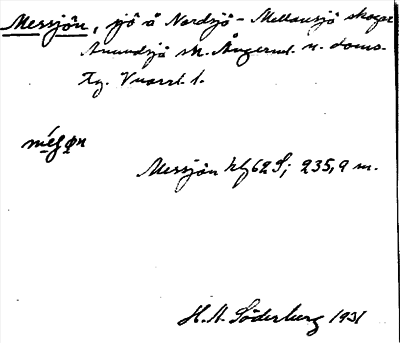 Messjön, sjö å Nordsjö - Mellansjö skogar
Anundsjö sn. Ångerml. n. doms.
tg. Vuorrl. l.
Messjön kbl 62 S; 235,9 m.
H. A. Söderberg 1931